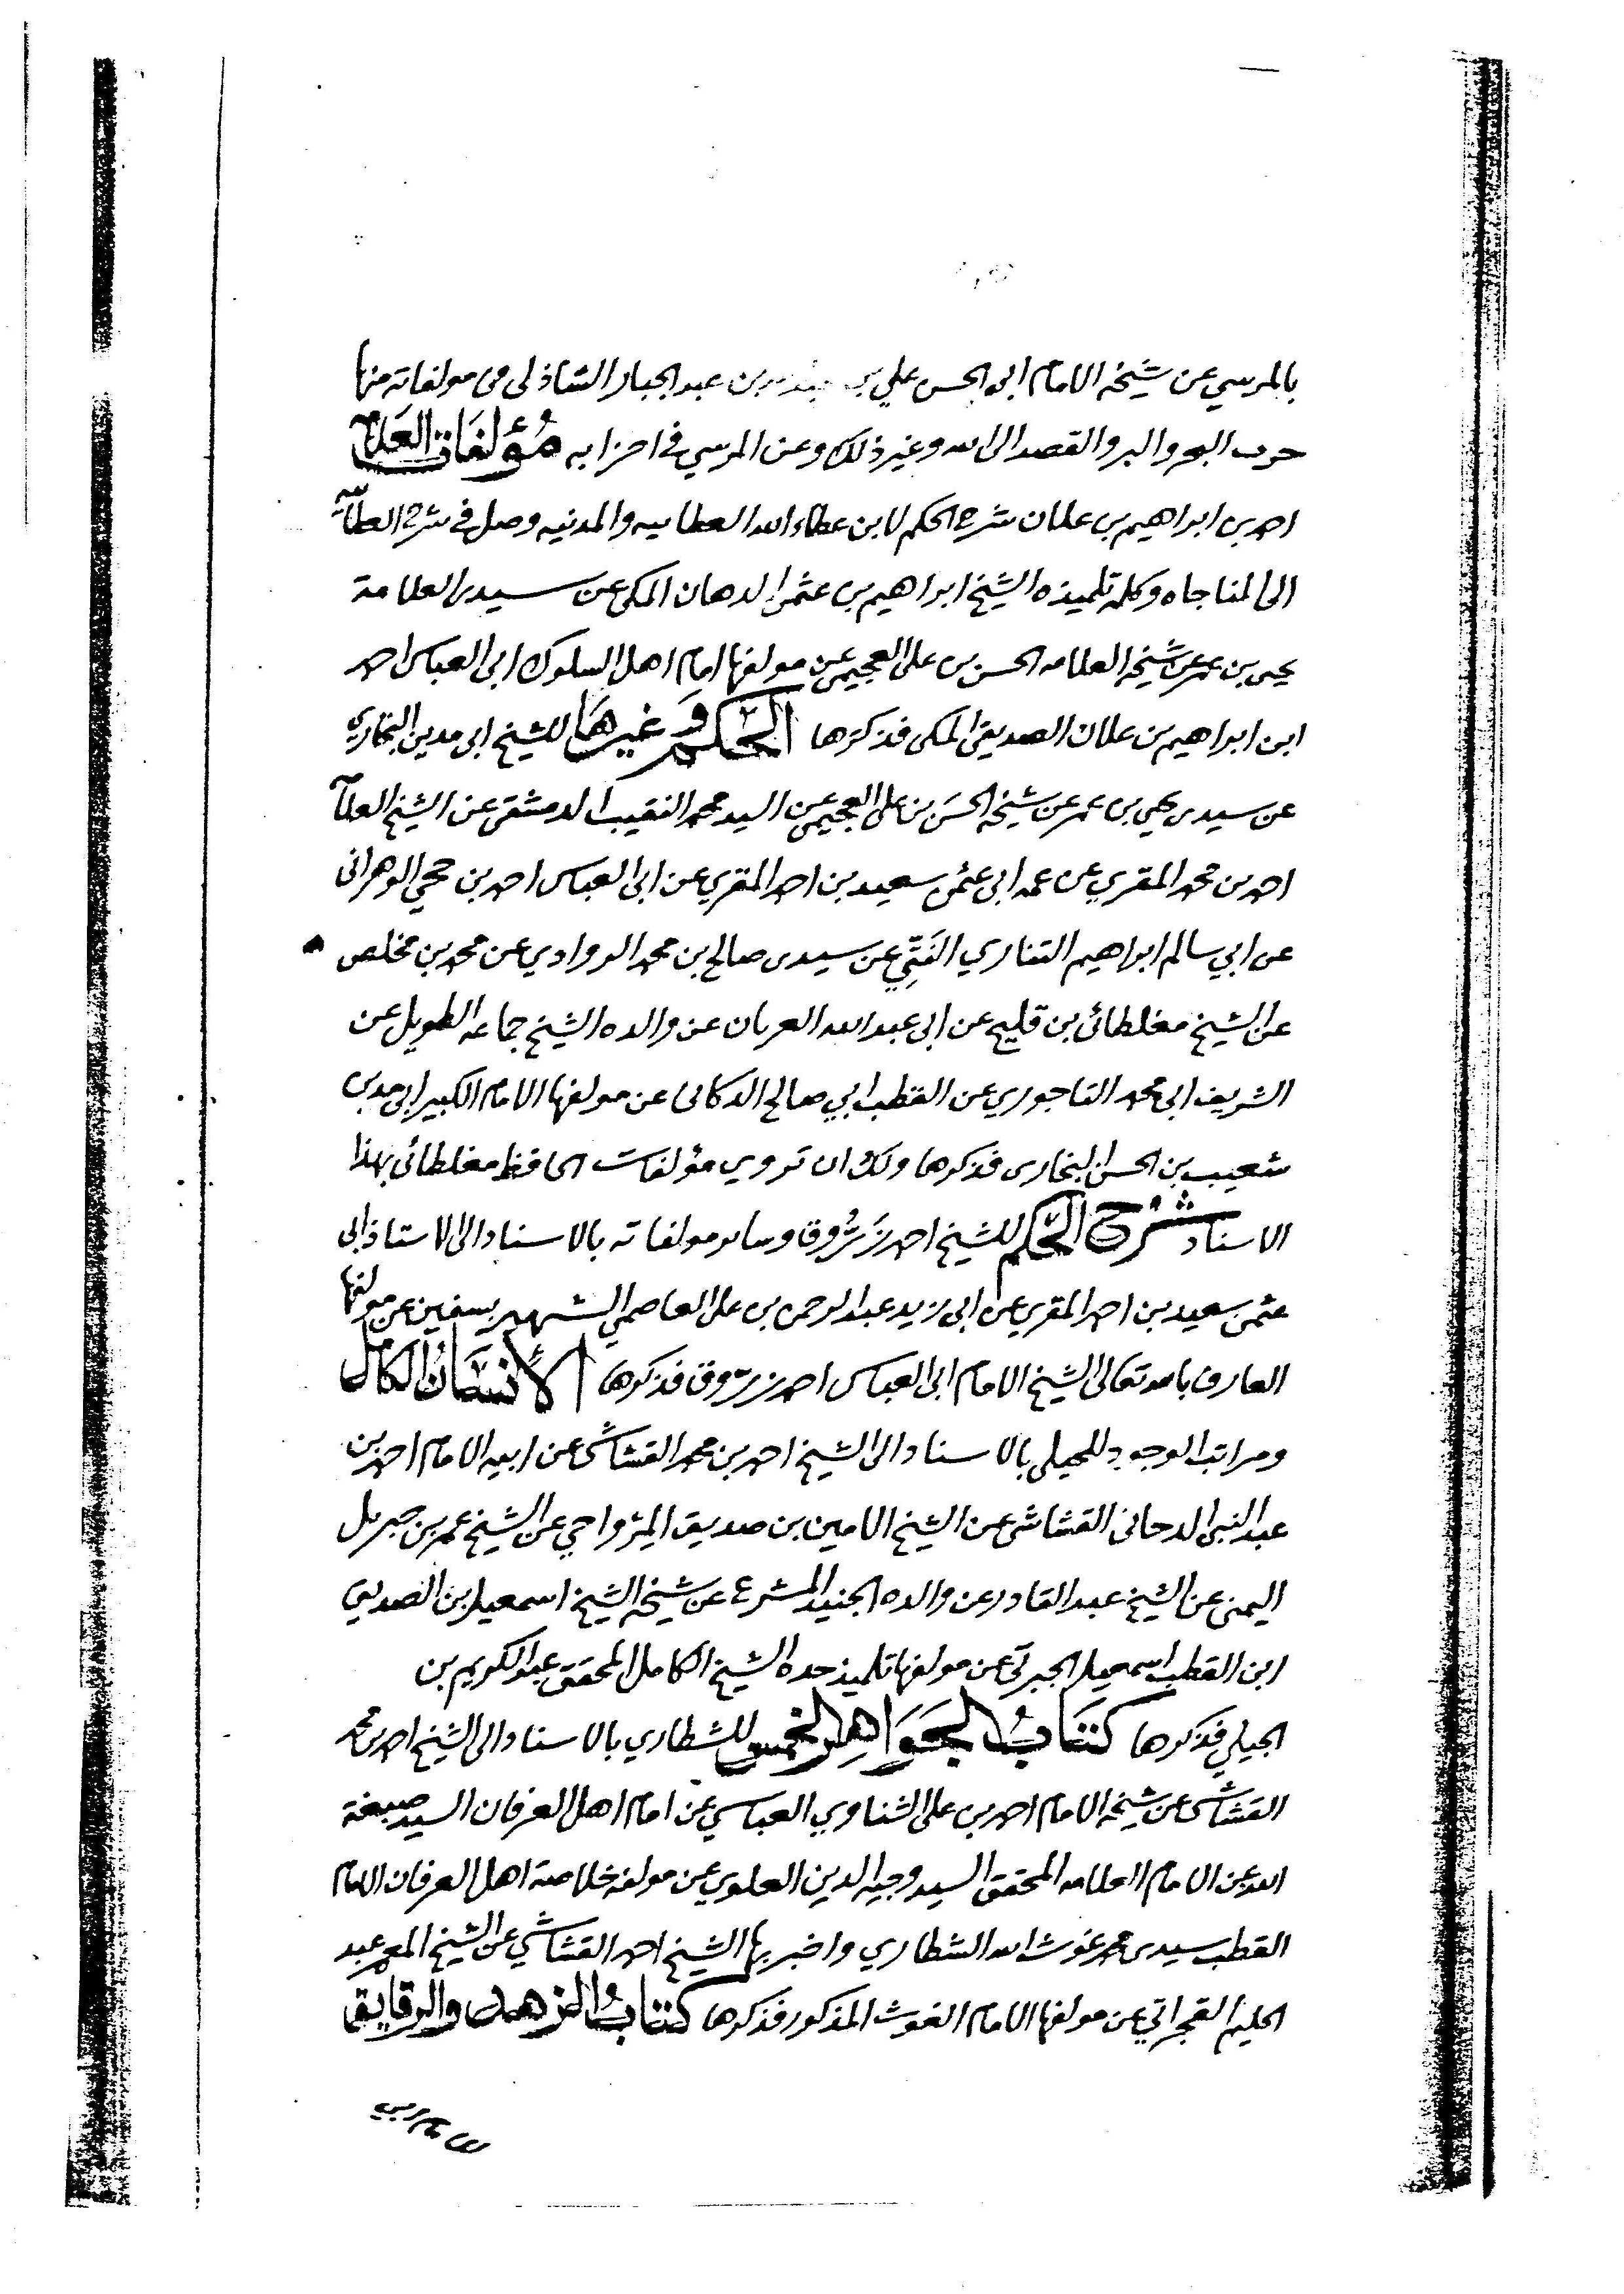 بالمرسي عن شيخه الامام ابو الحسن علي بن عبد الله بن عبد الجبار الشاذلى فى مولفاته منها
حزب البحر والبر والقصد الى الله وغير ذلك وعن المرسي في احزابه مُؤلفات العَلامة
احمد بن ابراهيم بن علان شرح الحكم لابن عطاء الله العطاييه والمدنيه وصل في شرح العطاييه
الى المناجاه وكمله تلميذه الشيخ ابراهيم بن عثمن الدهان المكى عن سيدى العلامة
يحيى بن عمر عن شيخه العلامه الحسن بن على العجيمي عن مولفها امام اهل السلوك ابى العباس احمد
ابن ابراهيم بن علان الصديقى المكى فذكرها الحِكم وَغيرهَا للشيخ ابى مدين البخاري
عن سيدى يحيى بن عمر عن شيخه الحسَن بن على العجيمي عن السيد محمد النقيب الدمشقى عن الشيخ العلامة
احمد بن محمد المقري عن عمه ابى عثمن سعيد بن احمد المقري عن ابى العباس احمد بن حجي الوهرانى
عن ابي سالم ابراهيم التناري الفَتِّي عن سيدى صالح بن محمد الزواوي عن محمد بن مخلص
عن الشيخ مغلطائى بن قليج عن ابى عبد الله العريان عن والده الشيخ جماعه الطويل عن
الشريف ابى محمد التاجوري عن القطب ابي صالح الدكالى عن مولفها الامام الكبير ابى مدين
شعيب بن الحسن البخارى فذكرها ولك ان تروي مؤلفات الحافظ مغلطائى بهذا
الاسناد شرح الحكم للشيخ احمد زَرُّوق وساير مولفاته بالاسناد الى الاستاذ ابى
عثمن سعيد بن احمد المقري عن ابى زيد عبد الرحمن بن على العاصمي الشهير بسفين عن مولفها
العارف بالله تعالى الشيخ الامام ابى العباس احمد زروق فذكرها الأنسَان الكامل
ومراتب الوجود للجيلى بالاسناد الى الشيخ احمد بن محمد القشاشى عن ابيه الامام احمد بن
عبد النبى الدجانى القشاشى عن الشيخ الامين بن صديق المِزْواجي عن الشيخ عمر بن جبريل
اليمنى عن الشيخ عبد القادر عن والده الجنيد المشرع عن شيخه الشيخ اسمعيل بن الصديق
ابن القطب اسمعيل الجبرتي عن مولفها تلميذ جده الشيخ الكامل المحقق عبد الكريم بن
الجيلي فذكرها كتَابُ الجَوَاهِر الخمس للشطاري بالاسناد الى الشيخ احمد بن محمد
القشاشى عن شيخه الامام احمد بن على الشناوي العباسي عن امام اهل العرفان السيد صبغة
الله عن الامام العلامه المحقق السيد وجيه الدين العلوي عن مولفه خلاصة اهل العرفان الامام
القطب سيدى محمد غوث الله الشطاري واخبر بها الشيخ احمد القشاشي عن الشيخ المعمر عبد
الحليم القجراتي عن مولفها الامام الغوث المذكور فذكرها كتابُ الزهد والرقايق